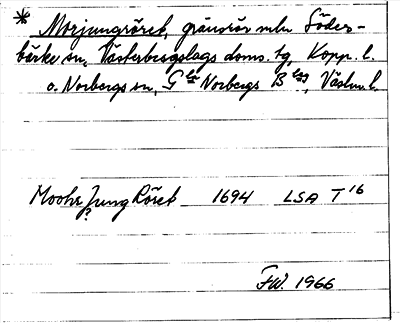 * Morjungröret, gränsrör mln Söder-
bärke sn, Västerbergslags doms. tg, Kopp. l.
o. Norbergs sn, Gla Norbergs Blag, Västm. l.
Moohr Jung Röret 1694 LSA T 16
?
FW. 1966